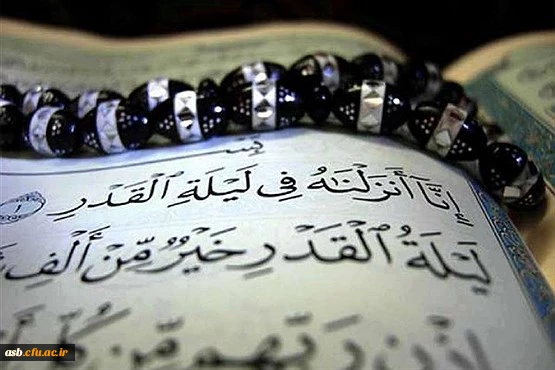 إِنَّا أَنزَلْنَٰهُ فِي لَيْلَةِ ٱلْقَدْرِ ١
لَيْلَةُ ٱلْقَدْرِ خَيْرٌ مِّنْ أَلْفِ
رَبِّهِم مِّن
asb.cfu.ac.ir